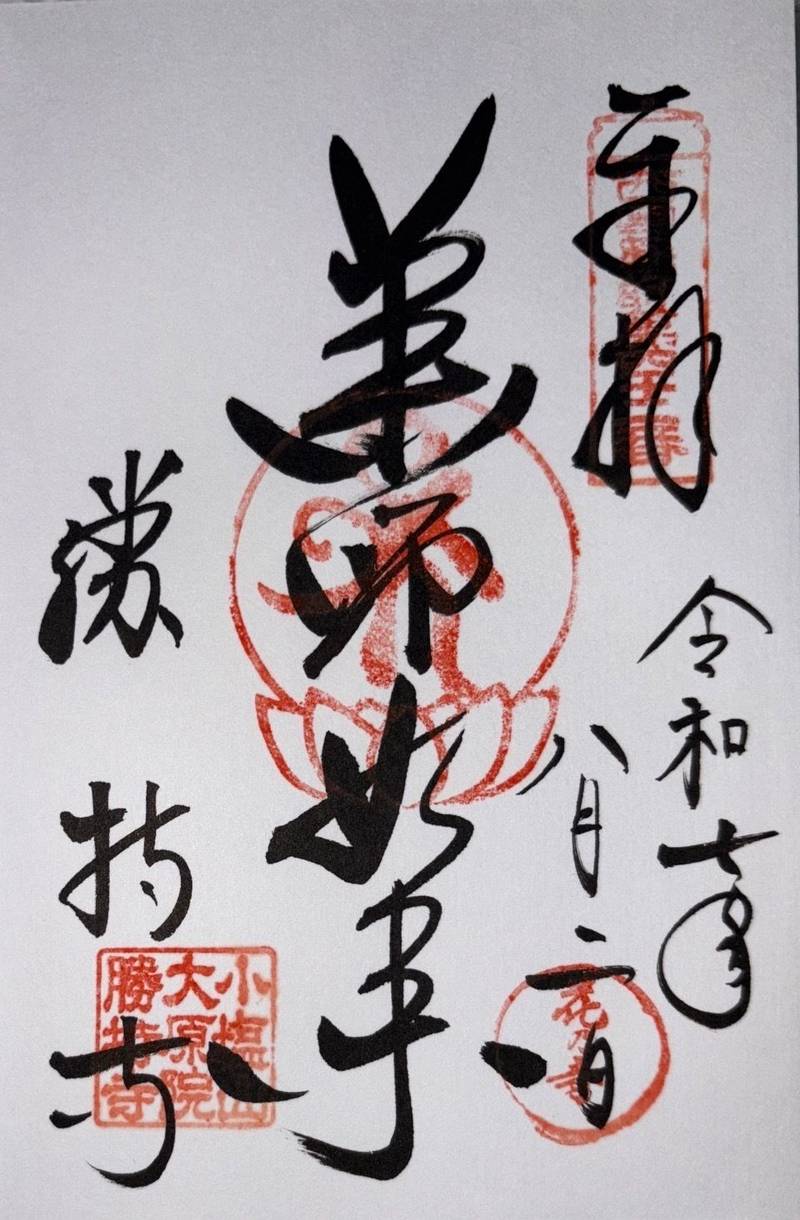 奉拝
令和七年
八月二日
薬師如来
勝持寺
小塩山
大原院
勝持寺
花乃寺